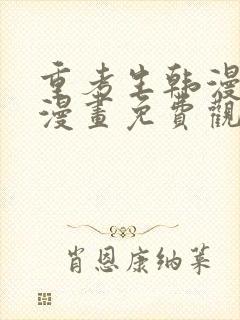 重考生韩漫
漫畫免費觀
肖恩康纳莱